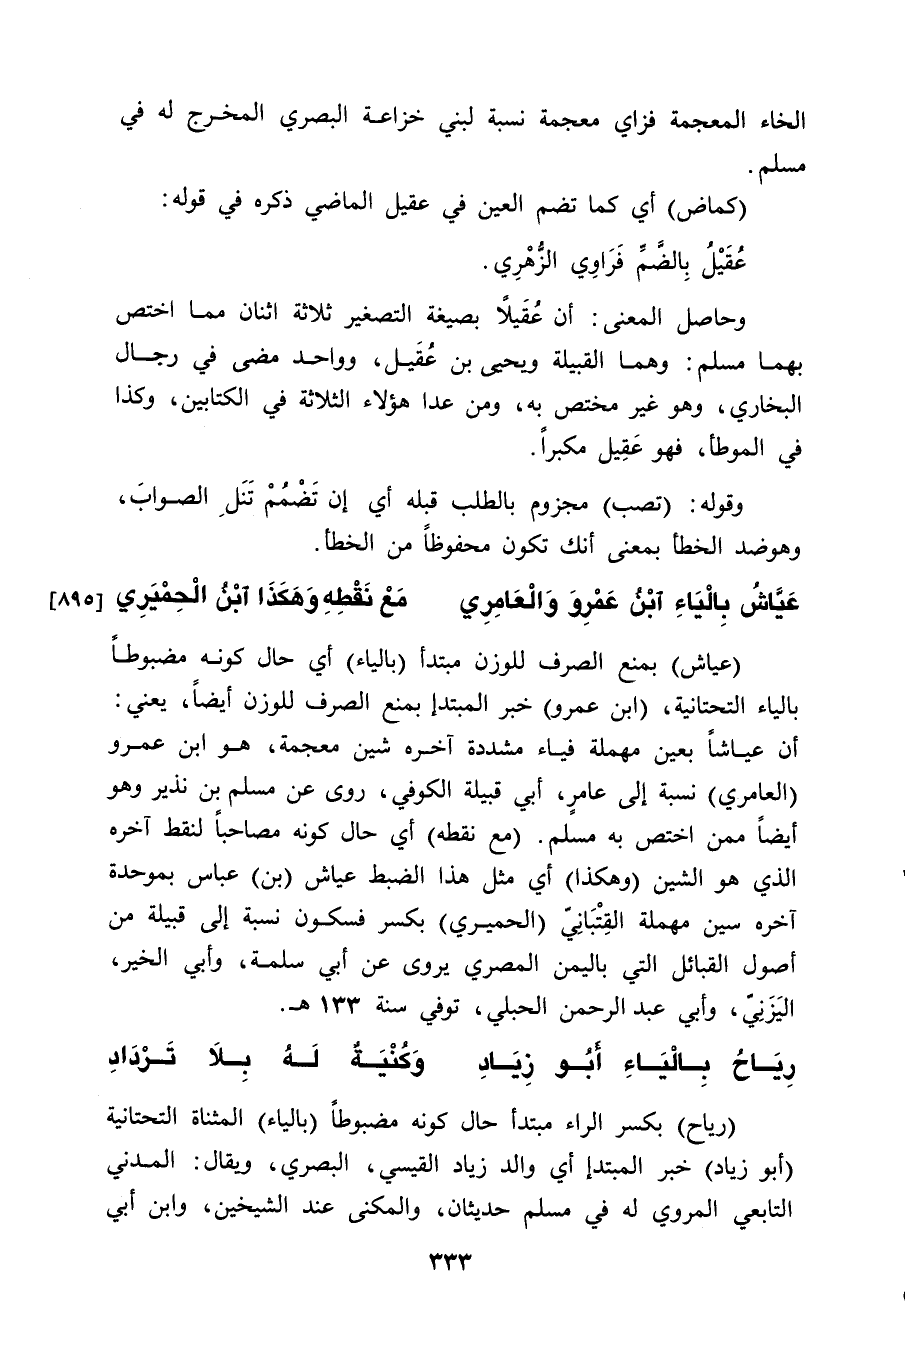 الخاء المعجمة فزاي معجمة نسبة لبني خزاعة البصري المخرج له في
مسلم.
(كماض) أي كما تضم العين في عقيل الماضي ذكره في قوله:
عُقَيْلُ بِالضَّمِّ فَرَاوِي الزُّهْرِي.
وحاصل المعنى: أن عُقَيلًا بصيغة التصغير ثلاثة اثنان مما اختص
بهما مسلم: وهما القبيلة ويحيى بن عُقَيل، وواحد مضى في رجال
البخاري، وهو غير مختص به، ومن عدا هؤلاء الثلاثة في الكتابين، وكذا
في الموطأ، فهو عَقِيل مكبراً.
وقوله: (تصب) مجزوم بالطلب قبله أي إن تَضْمُمْ تَنَلِ الصوابَ،
وهوضد الخطأ بمعنى أنك تكون محفوظاً من الخطأ.
عَيَّاشُ بِالْيَاءِ آبْنُ عَمْرِو وَالْعَامِرِي مَعْ نَقْطِهِ وَهَكَذَا آبْنُ الْحِمْيَرِي [٨٩٥]
(عياش) بمنع الصرف للوزن مبتدأ (بالياء) أي حال كونه مضبوطاً
بالياء التحتانية، (ابن عمرو) خبر المبتدإ بمنع الصرف للوزن أيضاً، يعني:
أن عياشاً بعين مهملة فياء مشددة آخره شين معجمة، هو ابن عمرو
(العامري) نسبة إلى عامرٍ، أبي قبيلة الكوفي، روى عن مسلم بن نذير وهو
أيضاً ممن اختص به مسلم. (مع نقطه) أي حال كونه مصاحباً لنقط آخره
الذي هو الشين (وهكذا) أي مثل هذا الضبط عياش (بن) عباس بموحدة
آخره سين مهملة القِتْبَانِيّ (الحميري) بكسر فسكون نسبة إلى قبيلة من
أصول القبائل التي باليمن المصري يروى عن أبي سلمة، وأبي الخير،
اليَزَنِيّ، وأبي عبد الرحمن الحبلي، توفي سنة ١٣٣ هـ.
رِيَاحُ بِالْيَاءِ أَبُو زِيَادِ وَكُنْيَةٌ لَهُ بِلَا تَرْدَادِ
(رياح) بكسر الراء مبتدأ حال كونه مضبوطاً (بالياء) المثناة التحتانية
(أبو زياد) خبر المبتدإ أي والد زياد القيسي، البصري، ويقال: المدني
التابعي المروي له في مسلم حديثان، والمكنى عند الشيخين، وابن أبي
٣٣٣